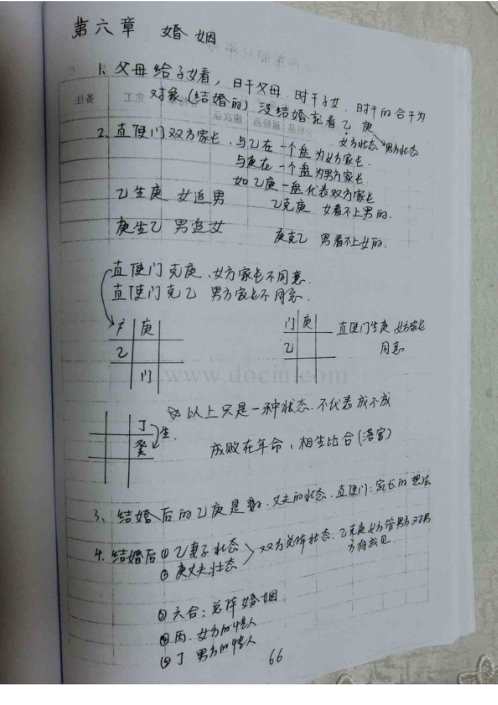 第六章 婚姻
1. 父母给子女看,日干父母.时干子女.时干的合干为
对象(结婚的)没结婚就看乙 庚
女方状态 男方状态
2. 直使门双方家长.与乙在一个盘为女方家长.
与庚在一个盘为男方家长
如乙庚一盘代表双方家长
乙生庚 女追男 乙克庚 女看不上男的.
庚生乙 男追女 庚克乙 男看不上女的.
直使门克庚.女方家长不同意.
直使门克乙 男方家长不同意.
庚 门 庚 直使门生庚 女方家长
乙 乙 同意
门
www.docin.com
以上只是一种状态.不代表成不成
丁 生
癸
成败在年命,相生比合(落宫)
3、结婚后的乙庚是 夫夫的状态.直使门:家长的想法
4.结婚后 ① 乙妻子状态 双方关系状态.乙克庚女方管男方对男
② 庚丈夫状态 方有意见
③ 六合:总体婚姻
④ 丙.女方的情人
⑤ 丁 男方的情人
66